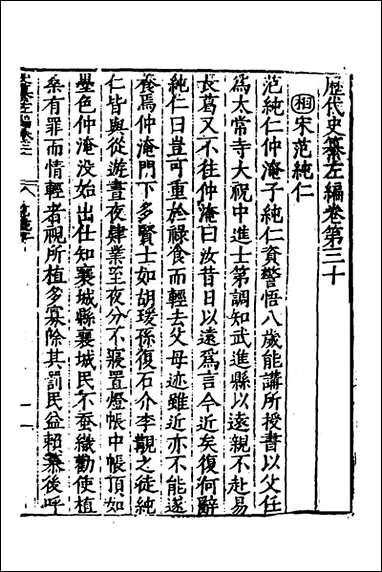 歷代史纂左編卷第三十
相宋范純仁
范純仁仲淹子純仁資警悟八歲能講所授書以父任
為太常寺大祝中進士第調知武進縣以遠親不赴易
長葛又不往仲淹曰汝昔日以遠為言今近矣復何辭
純仁曰豈可重於祿食而輕去父母迹雖近亦不能遂
養焉仲淹門下多賢士如胡瑗孫復石介李覯之徒純
仁皆與從遊晝夜肄業至夜分不寢置燈帳中帳頂如
墨色仲淹沒始出仕知襄城縣襄城民不蚕織勸使植
桑有罪而情輕者視所植多寡除其罰民益賴慕後呼